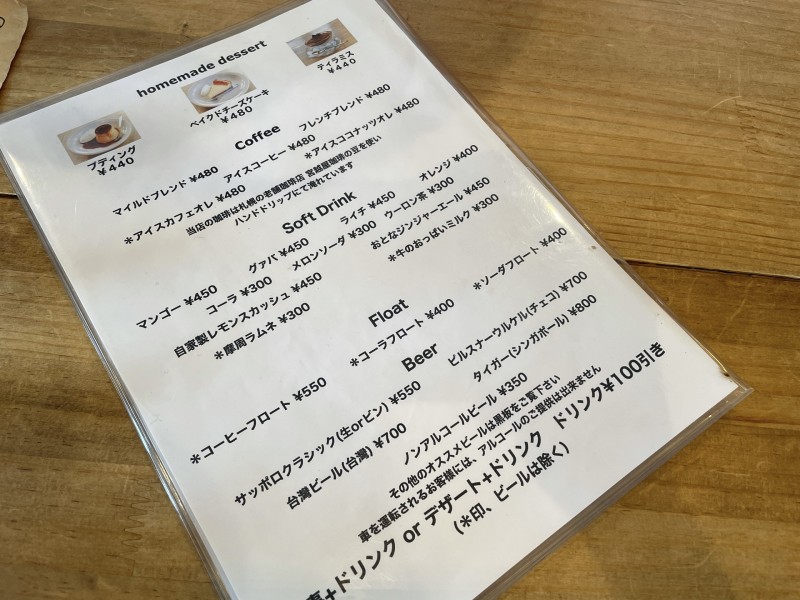 homemade dessert
プディング
¥440
ベイクドチーズケーキ
¥480
ティラミス
¥440
Coffee
マイルドブレンド ¥480 フレンチブレンド ¥480
アイスコーヒー ¥480
*アイスカフェオレ ¥480 *アイスココナッツオレ ¥480
当店の珈琲は札幌の老舗珈琲店 宮越屋珈琲の豆を使い
ハンドドリップにて淹れています
Soft Drink
マンゴー ¥450 グァバ ¥450 ライチ ¥450 オレンジ ¥400
コーラ ¥300 メロンソーダ ¥300 ウーロン茶 ¥300
自家製レモンスカッシュ ¥450 おとなジンジャーエール ¥450
*摩周ラムネ ¥300 *牛のおっぱいミルク ¥300
Float
*コーヒーフロート ¥550 *コーラフロート ¥400 *ソーダフロート ¥400
Beer
サッポロクラシック(生orビン) ¥550 ピルスナーウルケル(チェコ) ¥700
台湾ビール(台灣) ¥700 タイガー(シンガポール) ¥800
ノンアルコールビール ¥350
その他のオススメビールは黒板をご覧下さい
車を運転されるお客様には、アルコールのご提供は出来ません
+ドリンク or デザート+ドリンク ドリンク¥100引き
(*印、ビールは除く)